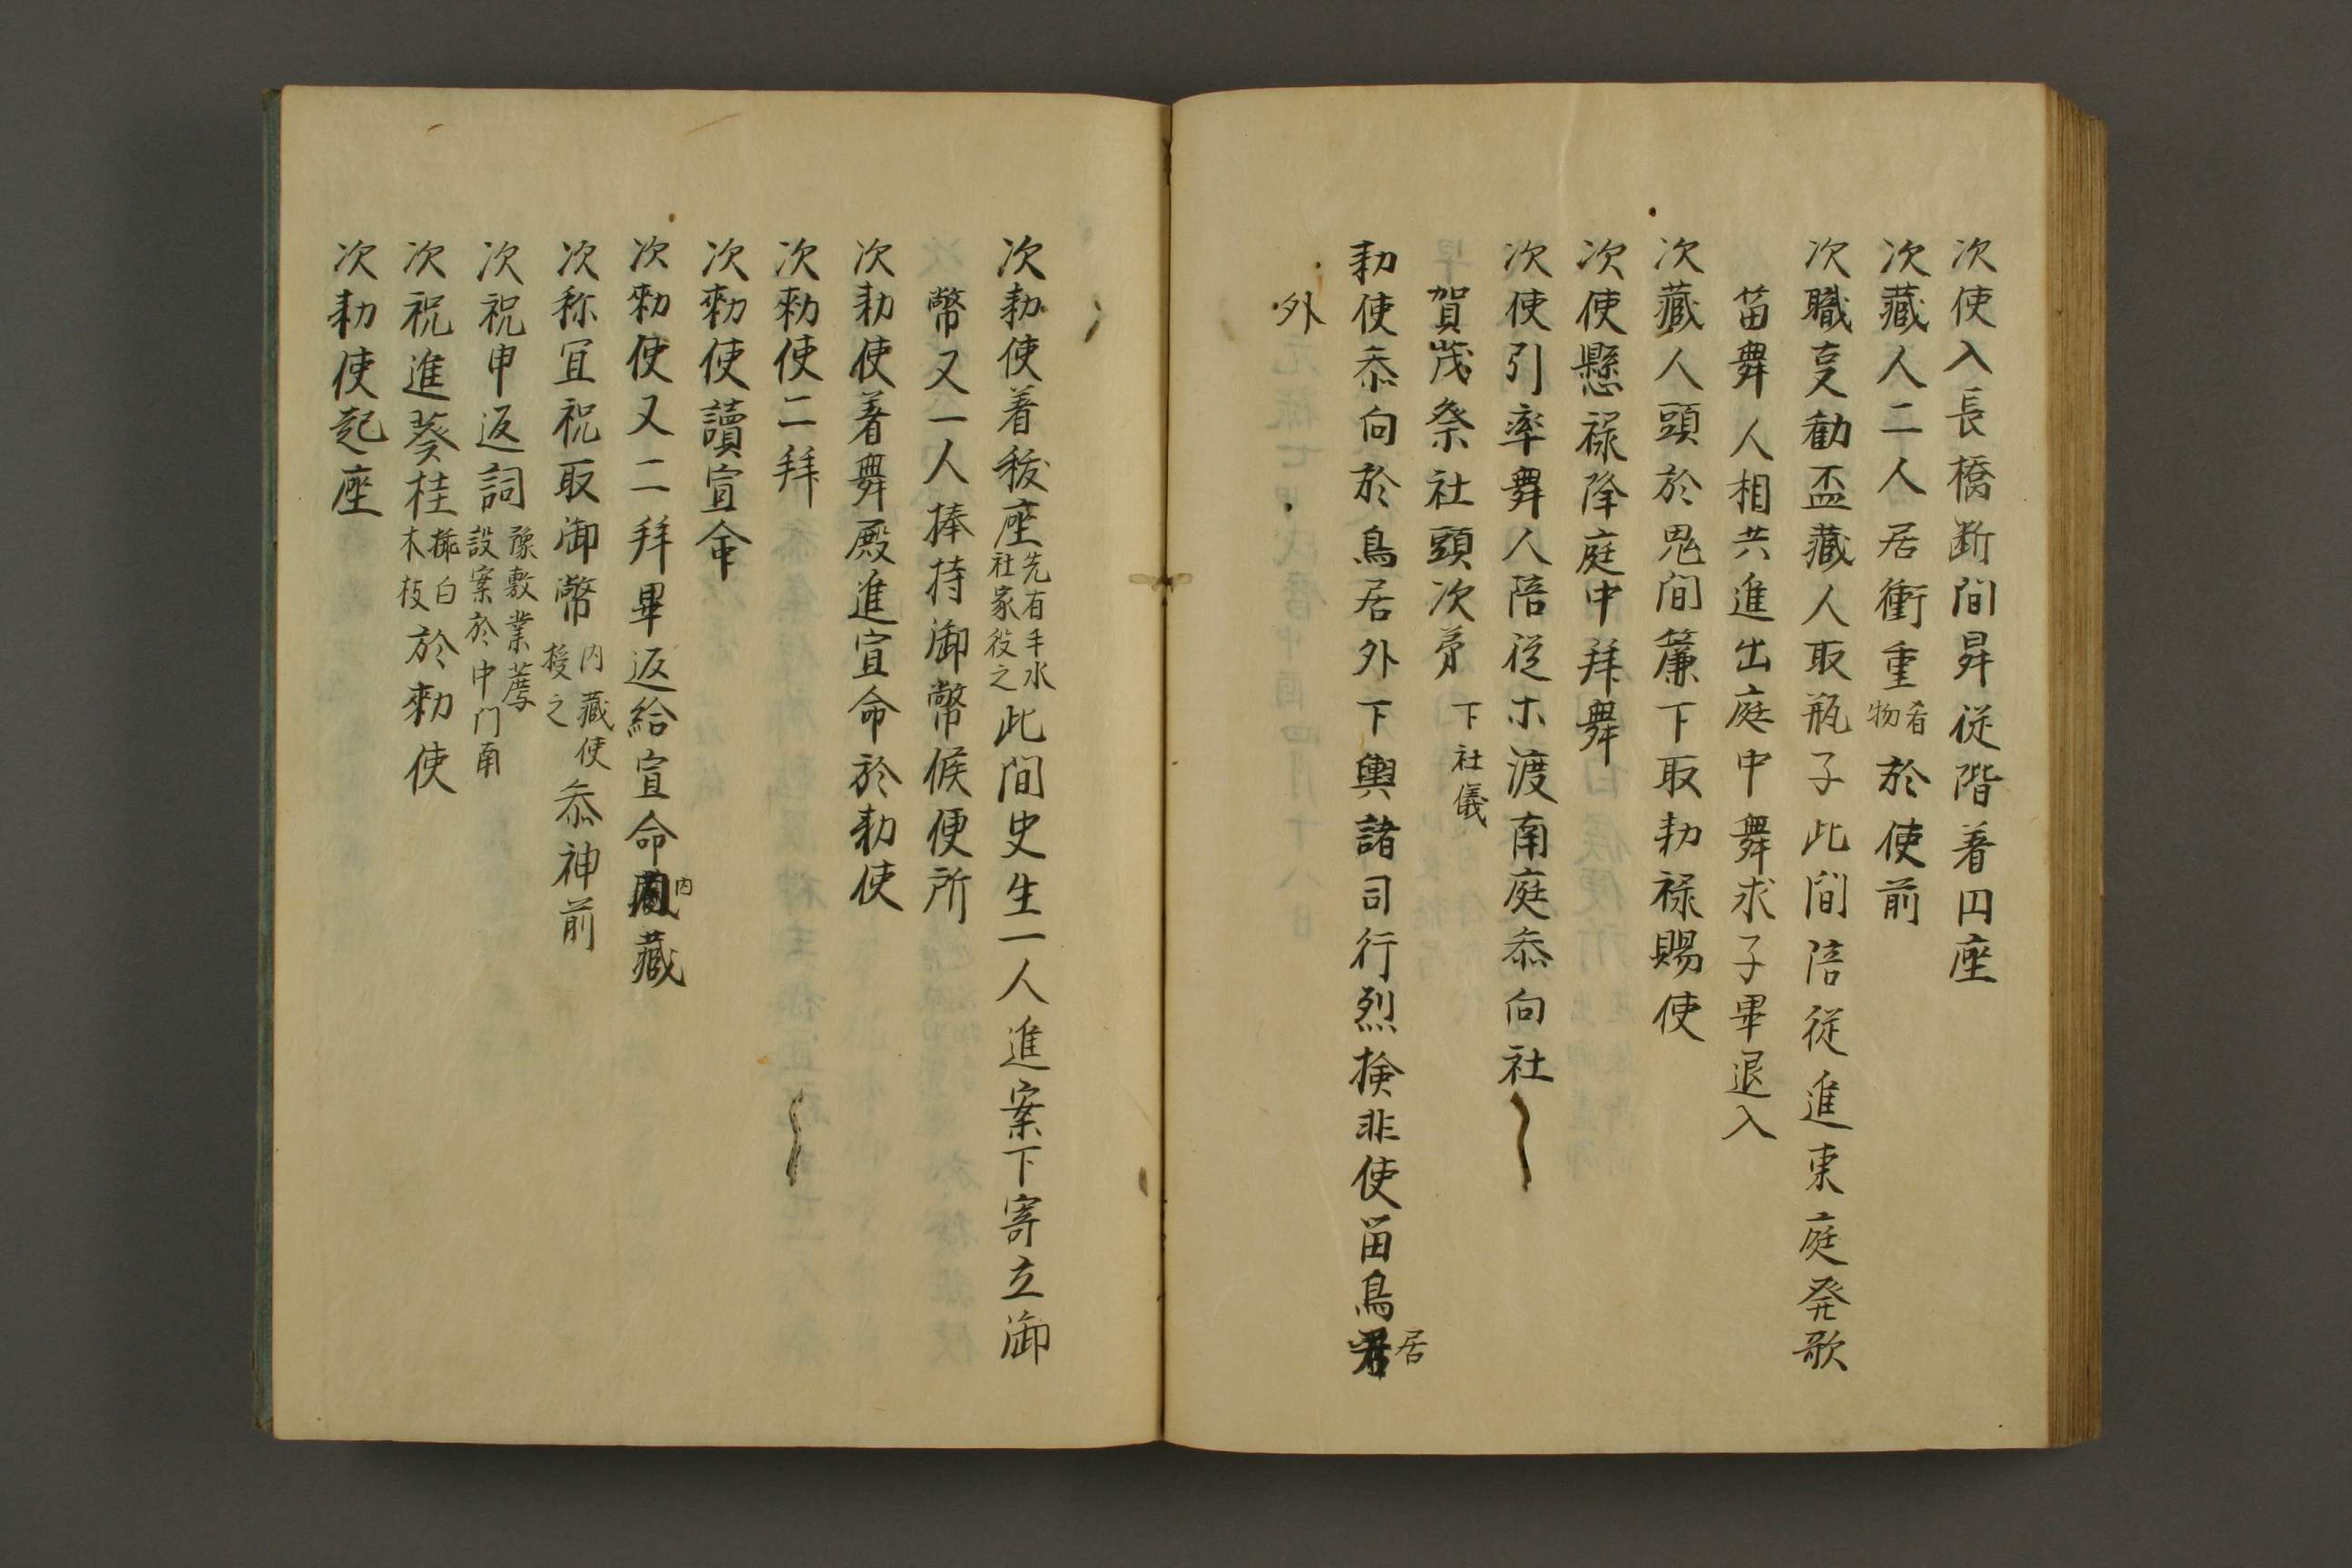 次使入長橋断間昇従階着円座
次蔵人二人居衝重肴物於使前
次職支勧盃蔵人取瓶子此間陪従進東庭発歌
笛舞人相共進出庭中舞求子畢退入
次蔵人頭於鬼間簾下取勅禄賜使
次使懸禄降庭中拝舞
次使引率舞人陪従ホ渡南庭忝向社
賀茂祭社頭次第下社儀
勅使忝向於鳥居外下輿諸司行烈検非使留鳥居
外
次勅使着祓座先有手水社家役之此間史生一人進案下寄立御
幣又一人捧持御幣候便所
次勅使着舞殿進宣命於勅使
次勅使二拜
次勅使讀宣命
次勅使又二拜畢返給宣命内蔵
次祢宜祝取御幣内蔵使授之忝神前
次祝申返詞豫敷業薦設案於中门南
次祝進葵桂挿白木枝於勅使
次勅使起座